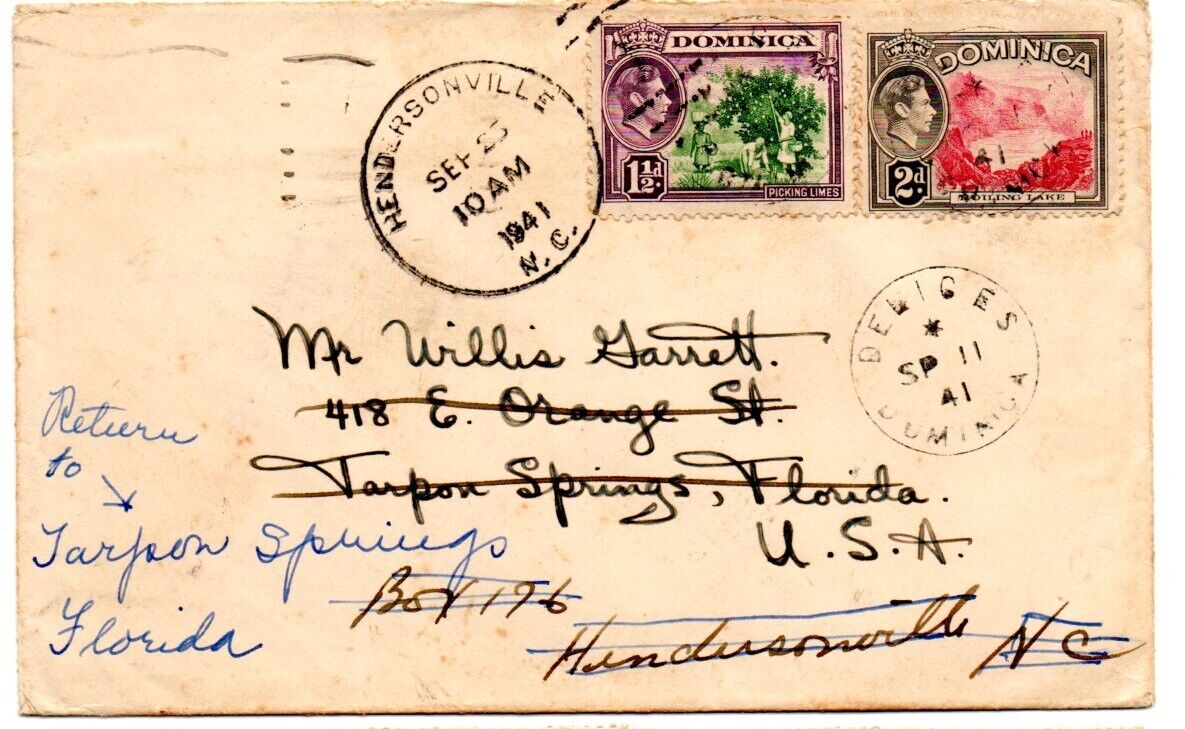 DOMINICA
1½d.
PICKING LIMES
DOMINICA
2d.
BOILING LAKE
HENDERSONVILLE
SEP 25
10 AM
1941
N. C.
DELICES
SP 11
41
DOMINICA
Mr Willis Garrett.
418 E. Orange St.
Tarpon Springs, Florida.
U. S. A.
Return
to
Tarpon Springs
Florida
Box 196
Hendersonville NC